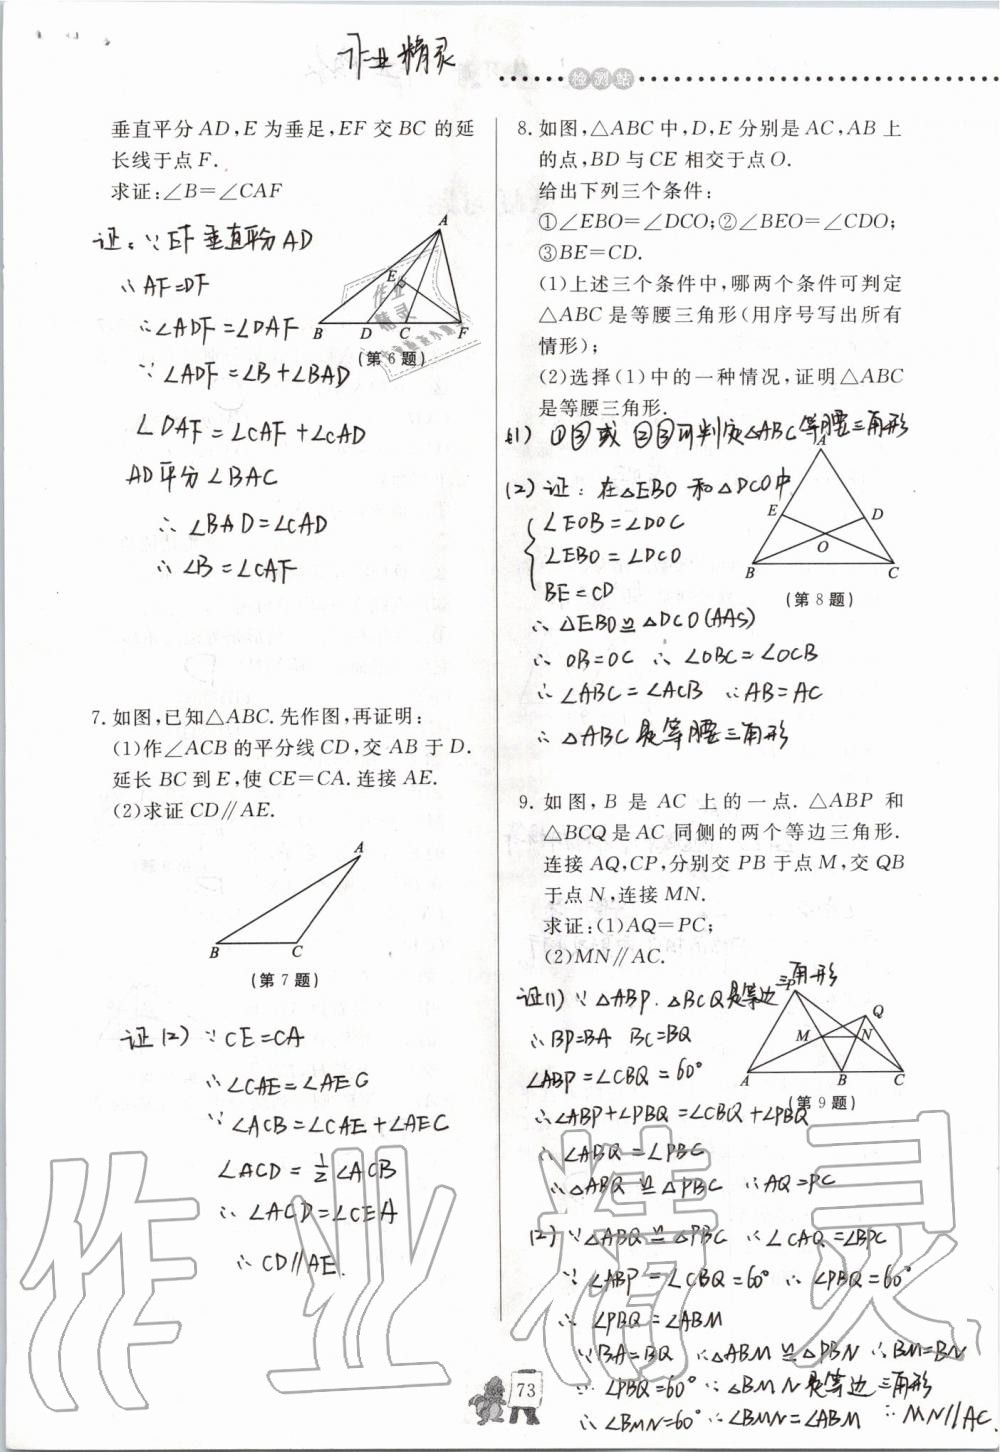 作业精灵
检测站
垂直平分AD,E为垂足,EF交BC的延
长线于点F.
求证:∠B=∠CAF
证:∵EF垂直平分AD
∴AF=DF
∴∠ADF=∠DAF
∵∠ADF=∠B+∠BAD
∠DAF=∠CAF+∠CAD
AD平分∠BAC
∴∠BAD=∠CAD
∴∠B=∠CAF
A
E
B D C F
(第6题)
作业
精灵
7.如图,已知△ABC.先作图,再证明:
(1)作∠ACB的平分线CD,交AB于D.
延长BC到E,使CE=CA.连接AE.
(2)求证CD∥AE.
A
B C
(第7题)
证(2)∵CE=CA
∴∠CAE=∠AEC
∵∠ACB=∠CAE+∠AEC
∠ACD=½∠ACB
∴∠ACD=∠CEA
∴CD∥AE.
8.如图,△ABC中,D,E分别是AC,AB上
的点,BD与CE相交于点O.
给出下列三个条件:
①∠EBO=∠DCO;②∠BEO=∠CDO;
③BE=CD.
(1)上述三个条件中,哪两个条件可判定
△ABC是等腰三角形(用序号写出所有
情形);
(2)选择(1)中的一种情况,证明△ABC
是等腰三角形.
(1) ①③或②③可判定△ABC等腰三角形
(2)证:在△EBO和△DCO中
∠EOB=∠DOC
∠EBO=∠DCO
BE=CD
∴△EBO≌△DCO(AAS)
∴OB=OC ∴∠OBC=∠OCB
∴∠ABC=∠ACB ∴AB=AC
∴△ABC是等腰三角形
A
E D
O
B C
(第8题)
9.如图,B是AC上的一点.△ABP和
△BCQ是AC同侧的两个等边三角形.
连接AQ,CP,分别交PB于点M,交QB
于点N,连接MN.
求证:(1)AQ=PC;
(2)MN∥AC.
证(1)∵△ABP.△BCQ是等边三角形
∴BP=BA BC=BQ
∠ABP=∠CBQ=60°
∴∠ABP+∠PBQ=∠CBQ+∠PBQ
∴∠ABQ=∠PBC
∴△ABQ≌△PBC ∴AQ=PC
P
Q
M N
A B C
(第9题)
(2)∵△ABQ≌△PBC ∴∠CAQ=∠BPC
∵∠ABP=∠CBQ=60° ∴∠PBQ=60°
∴∠PBQ=∠ABM
∵BA=BQ ∴△ABM≌△PBN ∴BM=BN
∵∠PBQ=60° ∴△BMN是等边三角形
∴∠BMN=60° ∴∠BMN=∠ABM ∴MN∥AC.
73
作业精灵